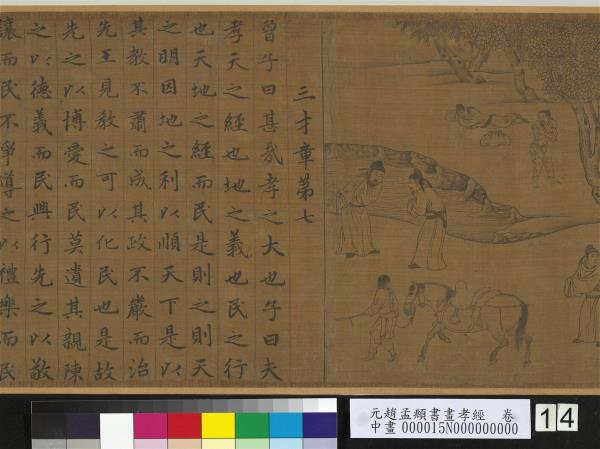 三才章第七
曾子曰甚哉孝之大也子曰夫
孝天之經也地之義也民之行
也天地之經而民是則之則天
之明因地之利以順天下是以
其教不肅而成其政不嚴而治
先王見教之可以化民也是故
先之以博愛而民莫遺其親陳
之以德義而民興行先之以敬
讓而民不爭導之以禮樂而民
元趙孟頫書畫孝經 卷
中畫 000015N000000000
14